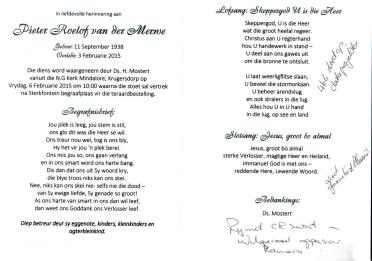 In liefdevolle herinnering aan
Pieter Roelof van der Merwe
Gebore: 11 September 1938
Oorlede: 3 Februarie 2015
Die diens word waargeneem deur Ds. H. Mostert
vanuit die N.G Kerk Mindalore, Krugersdorp op
Vrydag, 6 Februarie 2015 om 10:00 waarna die stoet sal vertrek
na Sterkfontein begrafplaas vir die teraardbestelling.
Begrafnisbrief:
Jou plek is leeg, jou stem is stil,
ons glo dit was die Heer se wil.
Ons treur nou wel, tog is ons bly,
Hy het vir jou 'n plek berei.
Ons mis jou so, ons gaan verlang
en in ons smart word ons harte bang.
Dis dan dat ons uit Sy woord kry,
die blye troos niks kan ons skei.
Nee, niks kan ons skei nie- selfs nie die dood –
van Sy ewige liefde, Sy genade so groot!
As ons harte van smart in ons dan wil leef,
dan weet ons Goddank ons Verlosser leef.
Diep betreur deur sy eggenote, kinders, kleinkinders en
agterkleinkind.
Lofsang: Skeppergod U is die Heer
Skeppergod, U is die Heer
wat die groot heelal regeer.
Christus aan U regterhand
hou U handewerk in stand –
U deel aan ons gawes uit
om die bronne te ontsluit.
U laat weerligflitse slaan,
U beveel die stormorkaan.
U beheer arendvlug
en ook stralers in die lug.
Alles hou U in U hand
in die lug, op see en land
Slotsang: Jesus, groot bo almal
Jesus, groot bo almal
sterke Verlosser, magtige Heer en Heiland,
Immanuel God is met ons –
reddende Here, Lewende Woord.
Bedankings:
Ds. Mostert